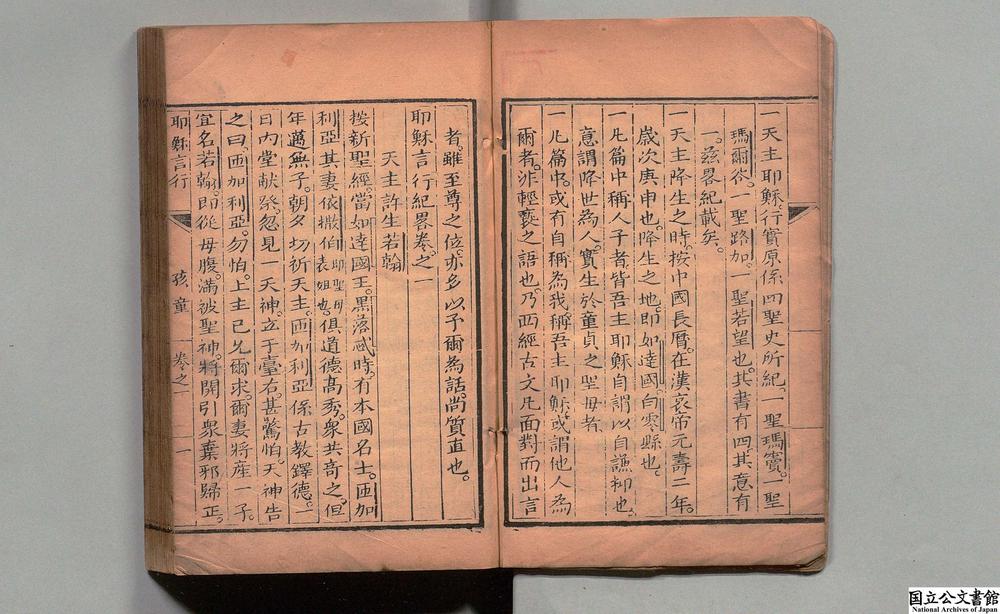 一天主耶穌行實原係四聖史所紀一聖瑪竇一聖
瑪爾谷一聖路加一聖若望也其書有四其意有
一茲畧紀載矣
一天主降生之時按中國長曆在漢哀帝元壽二年
歲次庚申也降生之地即如達國白零縣也
一凡篇中稱人子者皆吾主耶穌自謂以自謙抑也
意謂降世為人實生於童貞之聖母者
一凡篇中或有自稱為我稱吾主耶穌或謂他人為
爾者非輕䙝之語也乃西經古文凡面對而出言
者雖至尊之位亦多以予爾為話尚質直也
耶穌言行紀畧卷之一
天主許生若翰
按新聖經當如達國王黑落忒時有本國名士匝加
利亞其妻依撒伯聖母耶穌表姐也俱道德高秀眾共奇之但
年邁無子朝夕切祈天主匝加利亞係古教鐸德一
日內堂獻發忽見一天神立于臺右甚驚怕天神告
之曰匝加利亞勿怕上主已允爾求爾妻將產一子
宜名若翰即從母腹滿被聖神將開引眾棄邪歸正
耶穌言行 孩童 卷之一 一
国立公文書館
National Archives of Japan